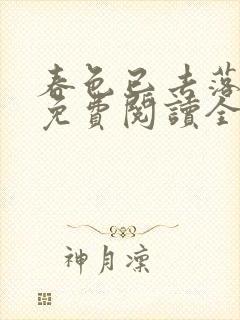 春色已去落
免費閱讀全
神月凜